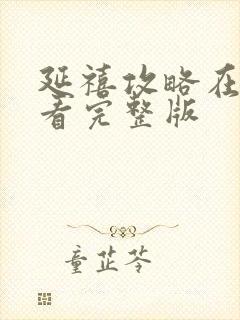 延禧攻略在
看完整版
童芷苓